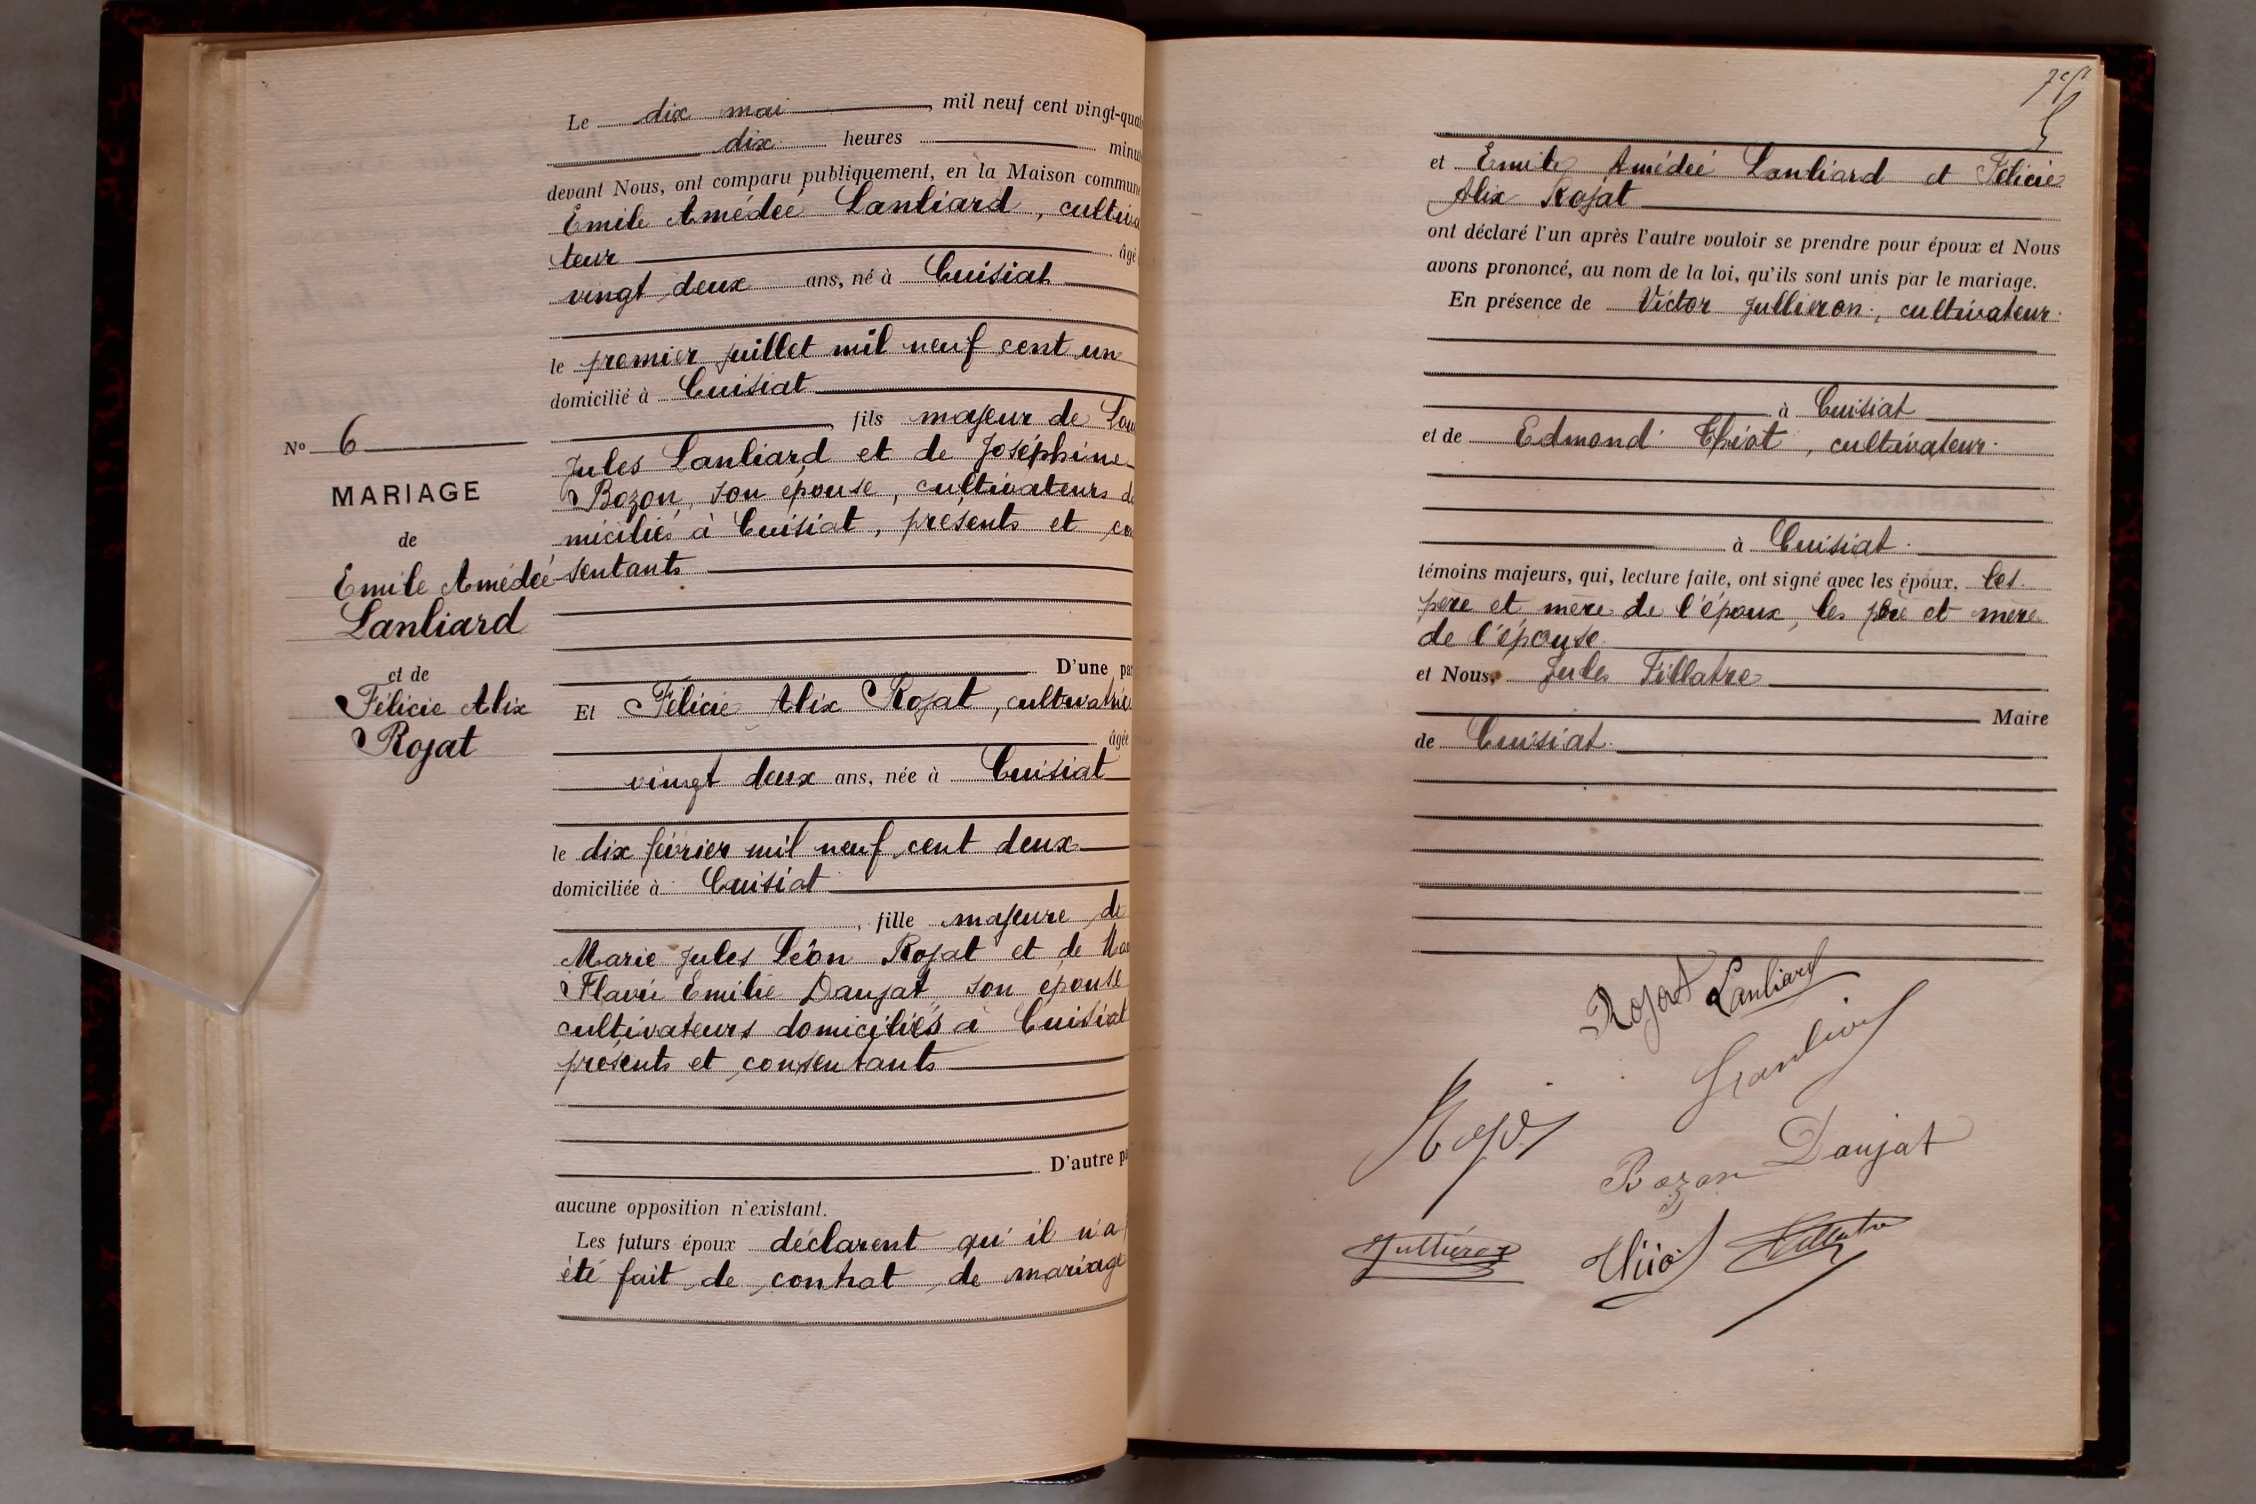 Le dix mai, mil neuf cent vingt-quat
dix heures minu
devant Nous, ont comparu publiquement, en la Maison commune
Emile Amédée Lanliard, cultiva
teur âgé
vingt deux ans, né à Cuisiat
le premier juillet mil neuf cent un
domicilié à Cuisiat
, fils majeur de Lou
Jules Lanliard et de Joséphine
Bozon, son épouse, cultivateurs do
miciliés à Cuisiat, présents et con
sentants
D'une pa
Et Félicie Alix Rojat, cultivatrice
âgée
vingt deux ans, née à Cuisiat
le dix février mil neuf cent deux
domiciliée à Cuisiat
, fille majeure de
Marie Jules Léon Rojat et de Ma
Flavie Emilie Daujat, son épouse
cultivateurs domiciliés à Cuisiat
présents et consentants
D'autre pa
aucune opposition n'existant.
Les futurs époux déclarent qu'il n'a
été fait de contrat de mariage
No 6
MARIAGE
de
Emile Amédée
Lanliard
et de
Félicie Alix
Rojat
et Emile Amédée Lanliard et Félicie
Alix Rojat
ont déclaré l'un après l'autre vouloir se prendre pour époux et Nous
avons prononcé, au nom de la loi, qu'ils sont unis par le mariage.
En présence de Victor Jullieron, cultivateur
à Cuisiat
et de Edmond Thiot, cultivateur
à Cuisiat
témoins majeurs, qui, lecture faite, ont signé avec les époux, les
père et mère de l'époux, les père et mère
de l'épouse
et Nous, Jules Fillatre
Maire
de Cuisiat
Rojat Lanliard
Lanliard
Daujat
Bozon